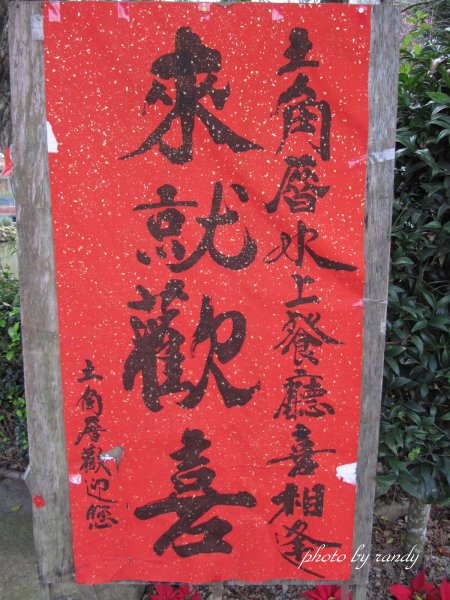 土角厝水上餐廳喜相逢
來就歡喜
土角厝歡迎您
photo by randy